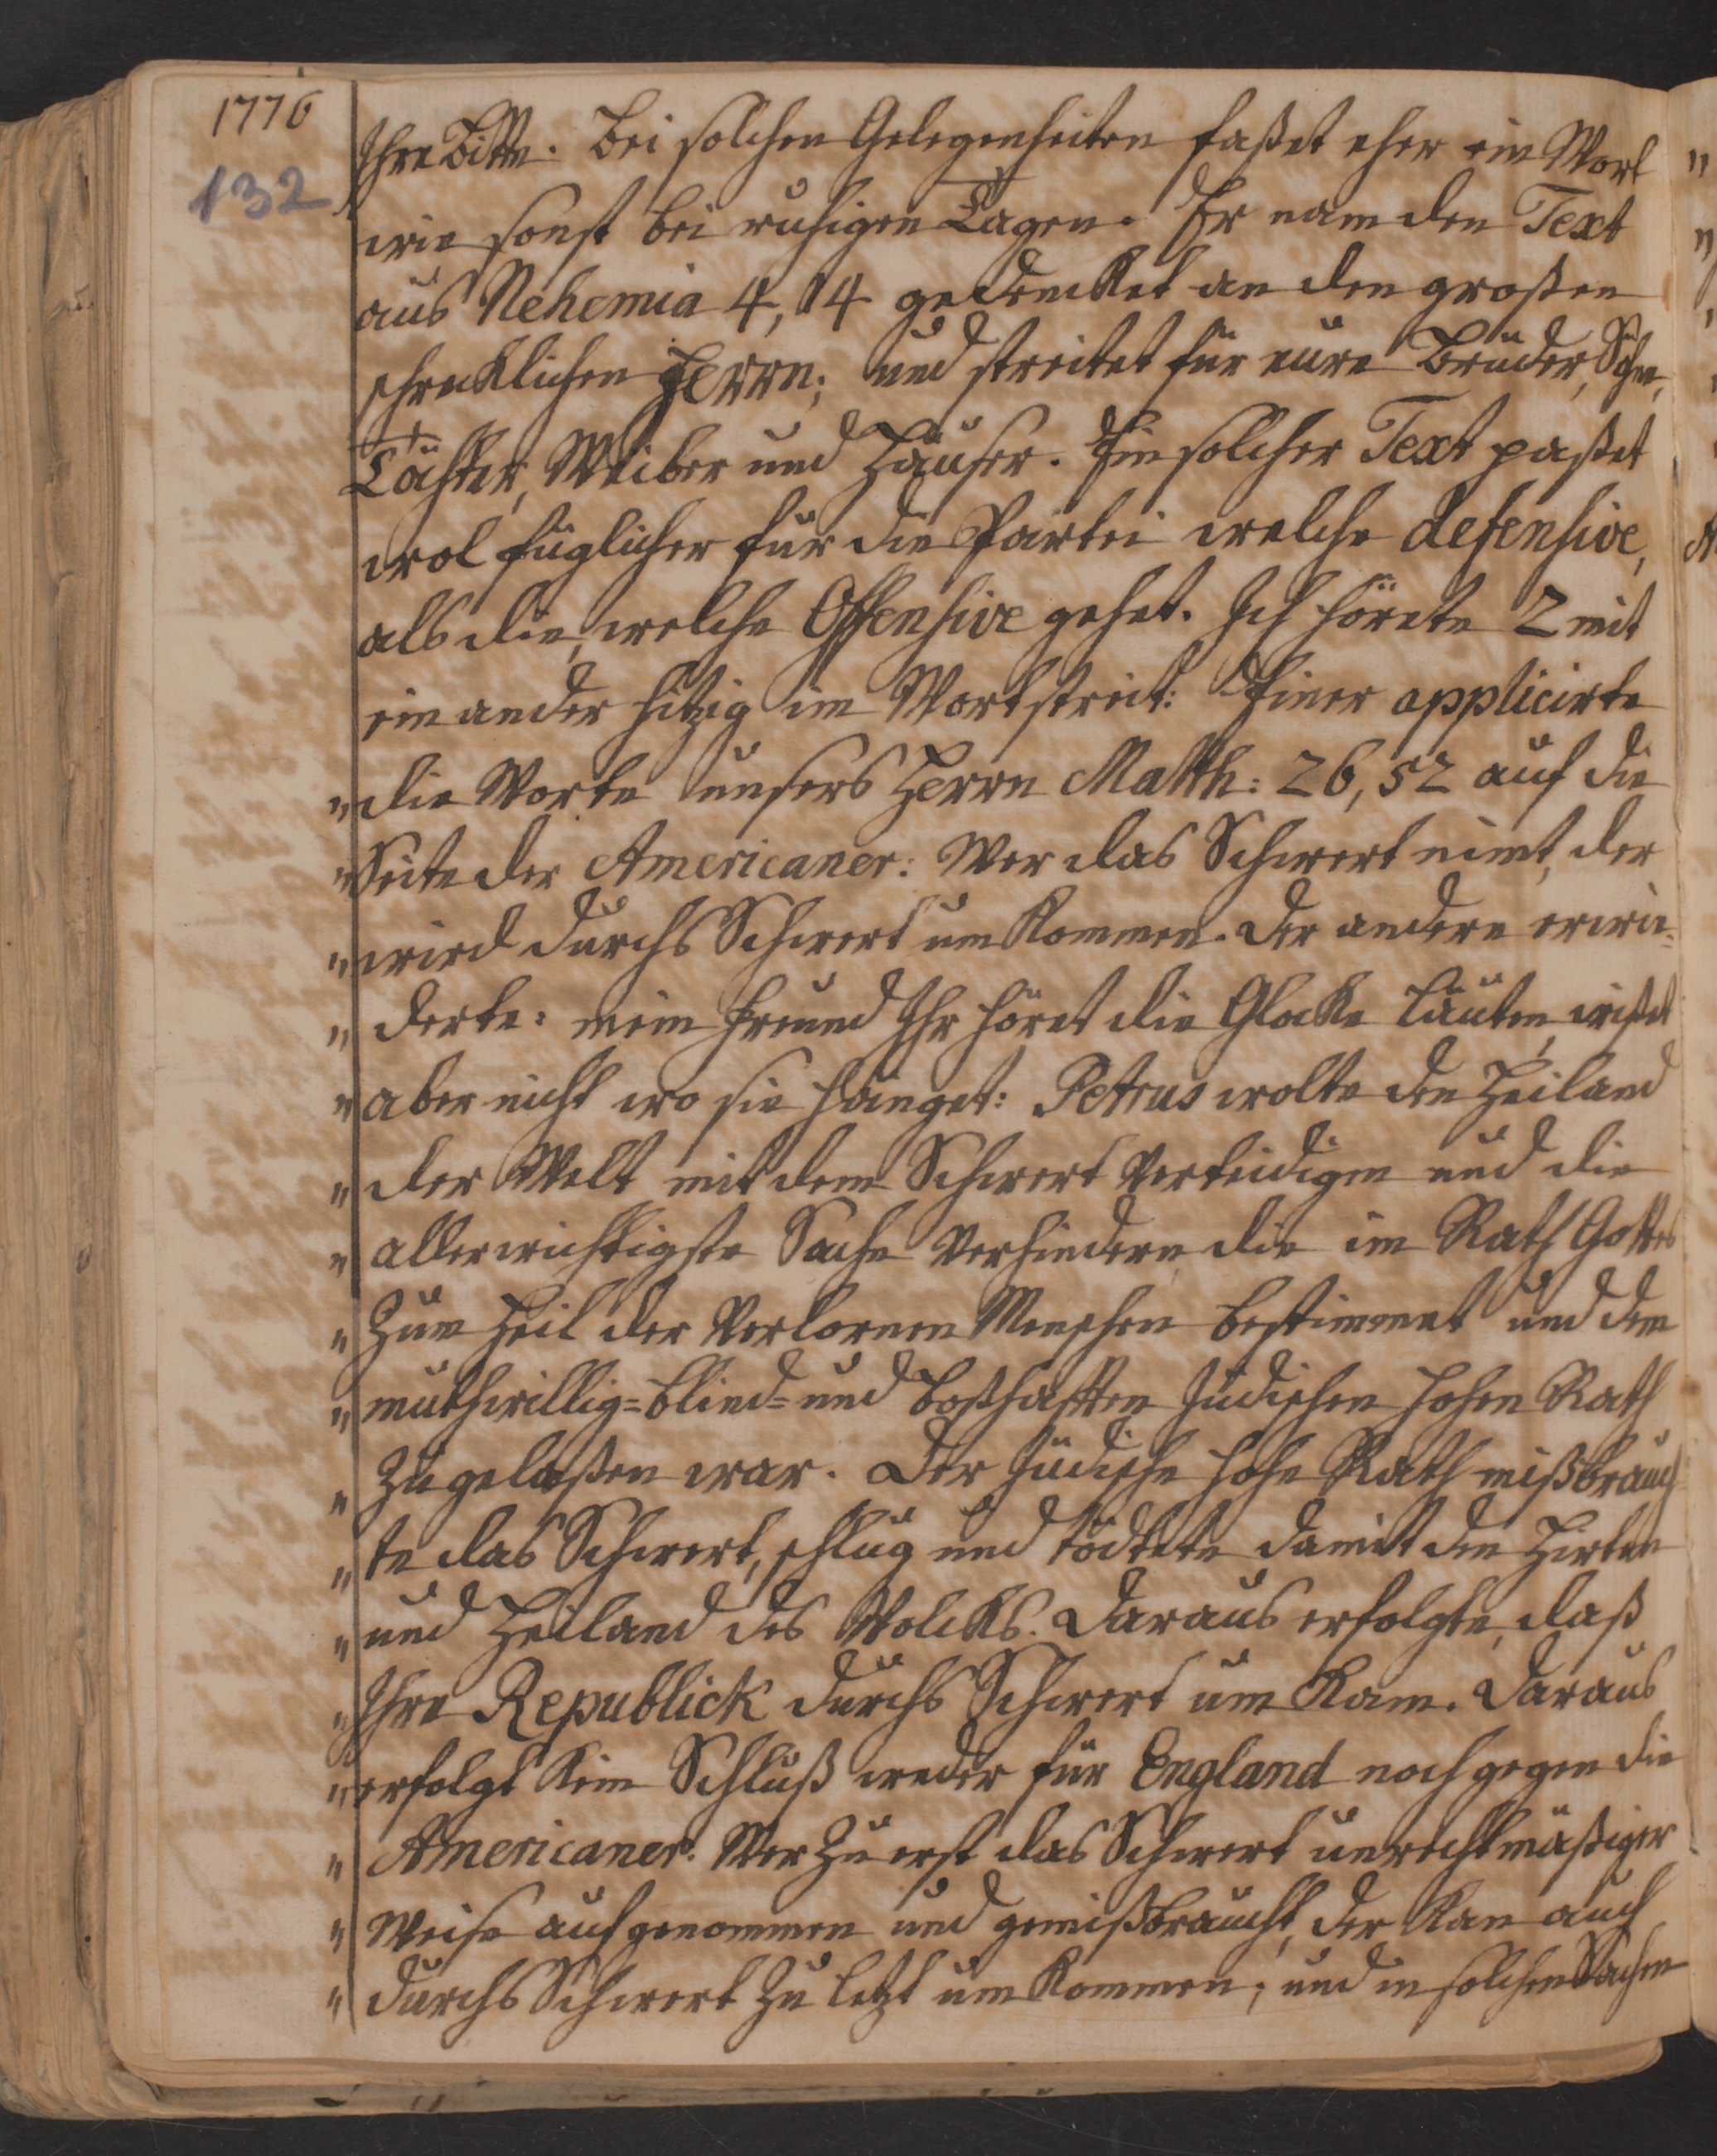 1776
132
Ihre Bitte. Bei solchen Gelegenheiten faßet eher ein Wort
wie sonst bei ruhigen Tagen. Er nam den Text
aus Nehemia 4, 14 gedencket an den großen
schrecklichen HErrn; und streitet für eure Brüder, Söhne,
Töchter, Weiber und Häuser. Ein solcher Text paßet
wol füglicher für die Partei welche defensive,
als die, welche Offensive gehet. Ich hörete 2 mit
ein ander hitzig im Wortstreit: Einer applicirte
" die Worte unsers Herrn Matth: 26, 52 auf die
" Seite der Americaner: Wer das Schwert nimt, der
" wird durchs Schwert um kommen. Der andere erwie-
" derte: mein Freund Ihr höret die Glocke läuten, wißet
" aber nicht wo sie hänget: Petrus wolte den Heiland
" der Welt mit dem Schwert verteidigen und die
" allerwichtigste Sache verhindern die im Rath Gottes
" zum Heil der verlornen Menschen bestimmet und dem
" muthwillig=blind= und boßhafften Jüdischen hohen Rath
" zugelaßen war. Der Jüdische hohe Rath mißbrauch
" te das Schwert, schlug und tödtete damit den Hirten
" und Heiland des Volcks. Daraus erfolgte, daß
" Ihre Republick durchs Schwert um kam. Daraus
" erfolgt kein Schluß weder für England noch gegen die
" Americaner. Wer zu erst das Schwert unrechtmäßiger
" Weise auf genommen und gemißbraucht, der kan auch
" durchs Schwert zu letzt um kommen; und in solchen Sachen